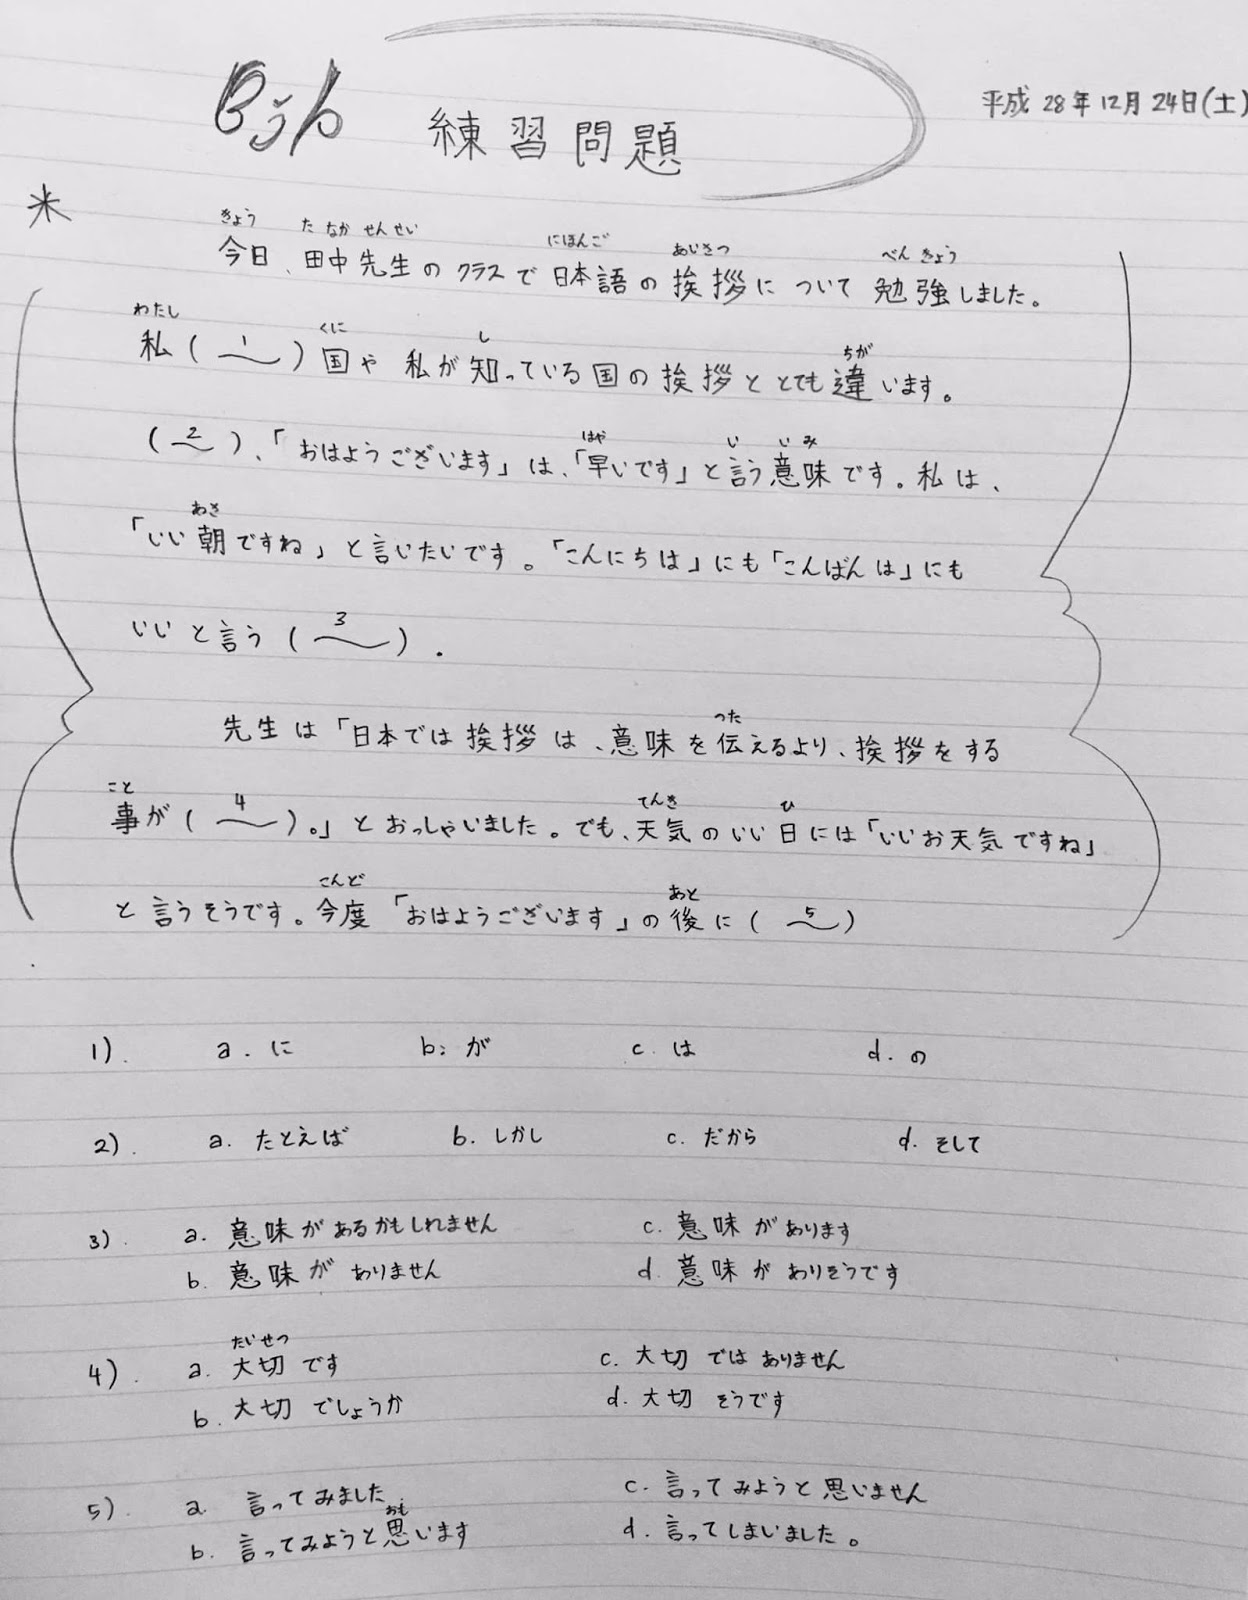 平成 28年12月24日(土)
練習問題
きょう たなか せんせい にほんご あいさつ べんきょう
今日、田中先生のクラスで日本語の挨拶について勉強しました。
わたし くに し ちが
私(1)国や私が知っている国の挨拶ととても違います。
はや い いみ
(2)、「おはようございます」は、「早いです」と言う意味です。私は、
あさ
「いい朝ですね」と言いたいです。「こんにちは」にも「こんばんは」にも
いいと言う(3).
つた
先生は「日本では挨拶は、意味を伝えるより、挨拶をする
こと てんき ひ
事が(4)。」とおっしゃいました。でも、天気のいい日には「いいお天気ですね」
こんど あと
と言うそうです。今度「おはようございます」の後に(5)
1). a. に b: が c. は d. の
2). a. たとえば b. しかし c. だから d. そして
3). a. 意味があるかもしれません c. 意味があります
b. 意味がありません d. 意味がありそうです
たいせつ
4). a. 大切です c. 大切ではありません
b. 大切でしょうか d. 大切そうです
5) a. 言ってみました c. 言ってみようと思いません
おも
b. 言ってみようと思います d. 言ってしまいました。